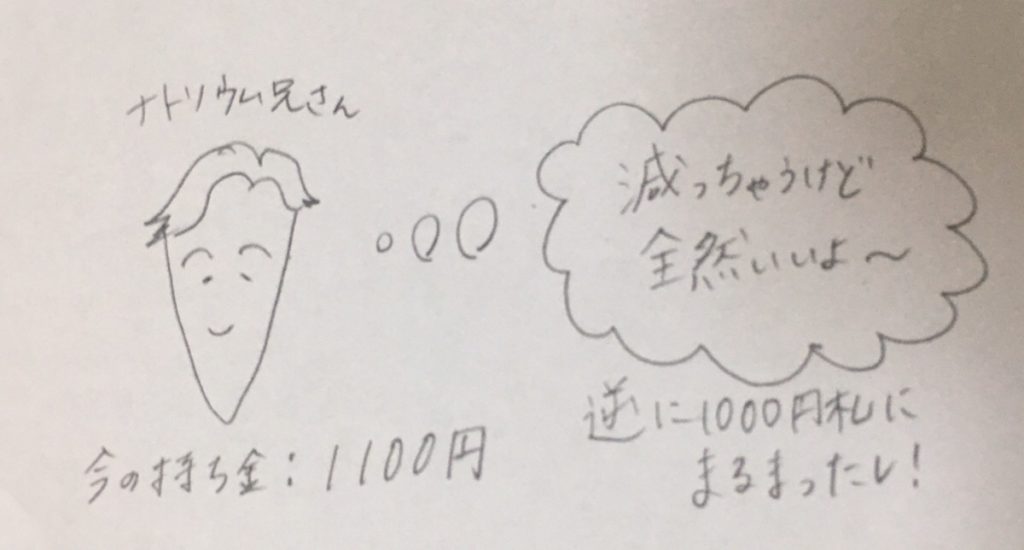 ナトリウム兄さん
減っちゃうけど
全然いいよ〜
今の持ち金：1100円
逆に1000円札に
まるまったし！